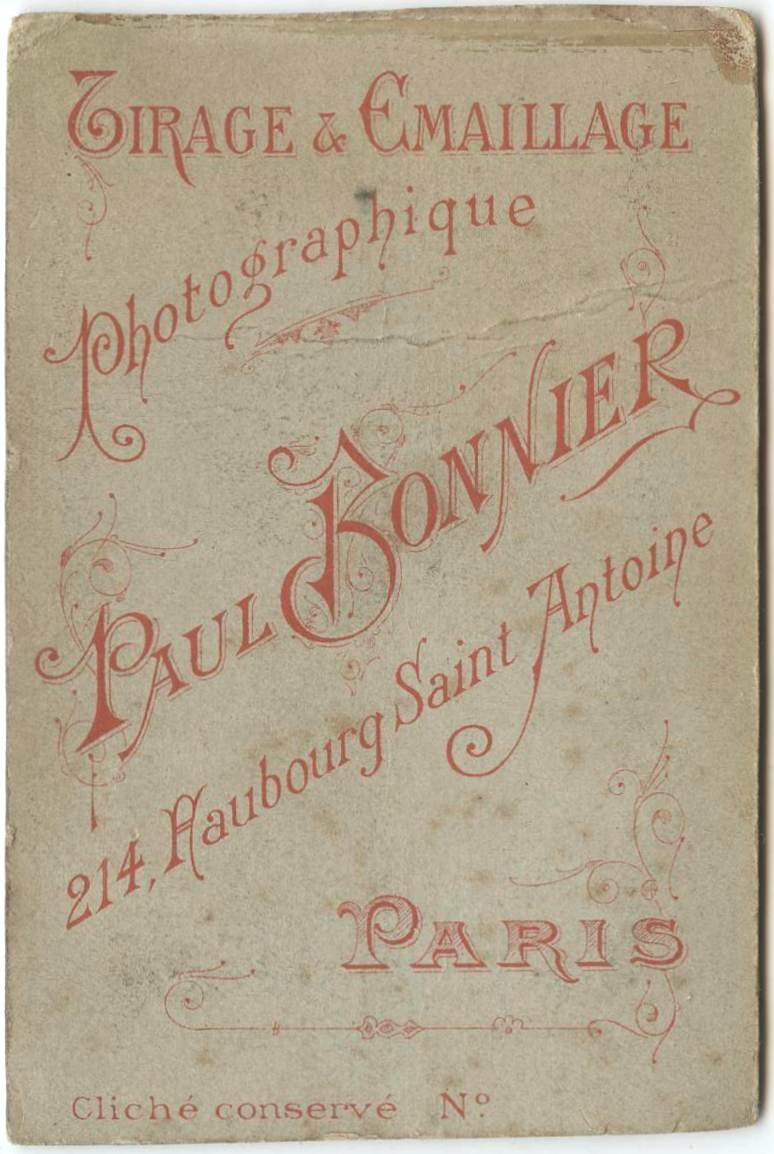 TIRAGE & EMAILLAGE
Photographique
PAUL BONNIER
214, Faubourg Saint Antoine
PARIS
Cliché conservé Nº